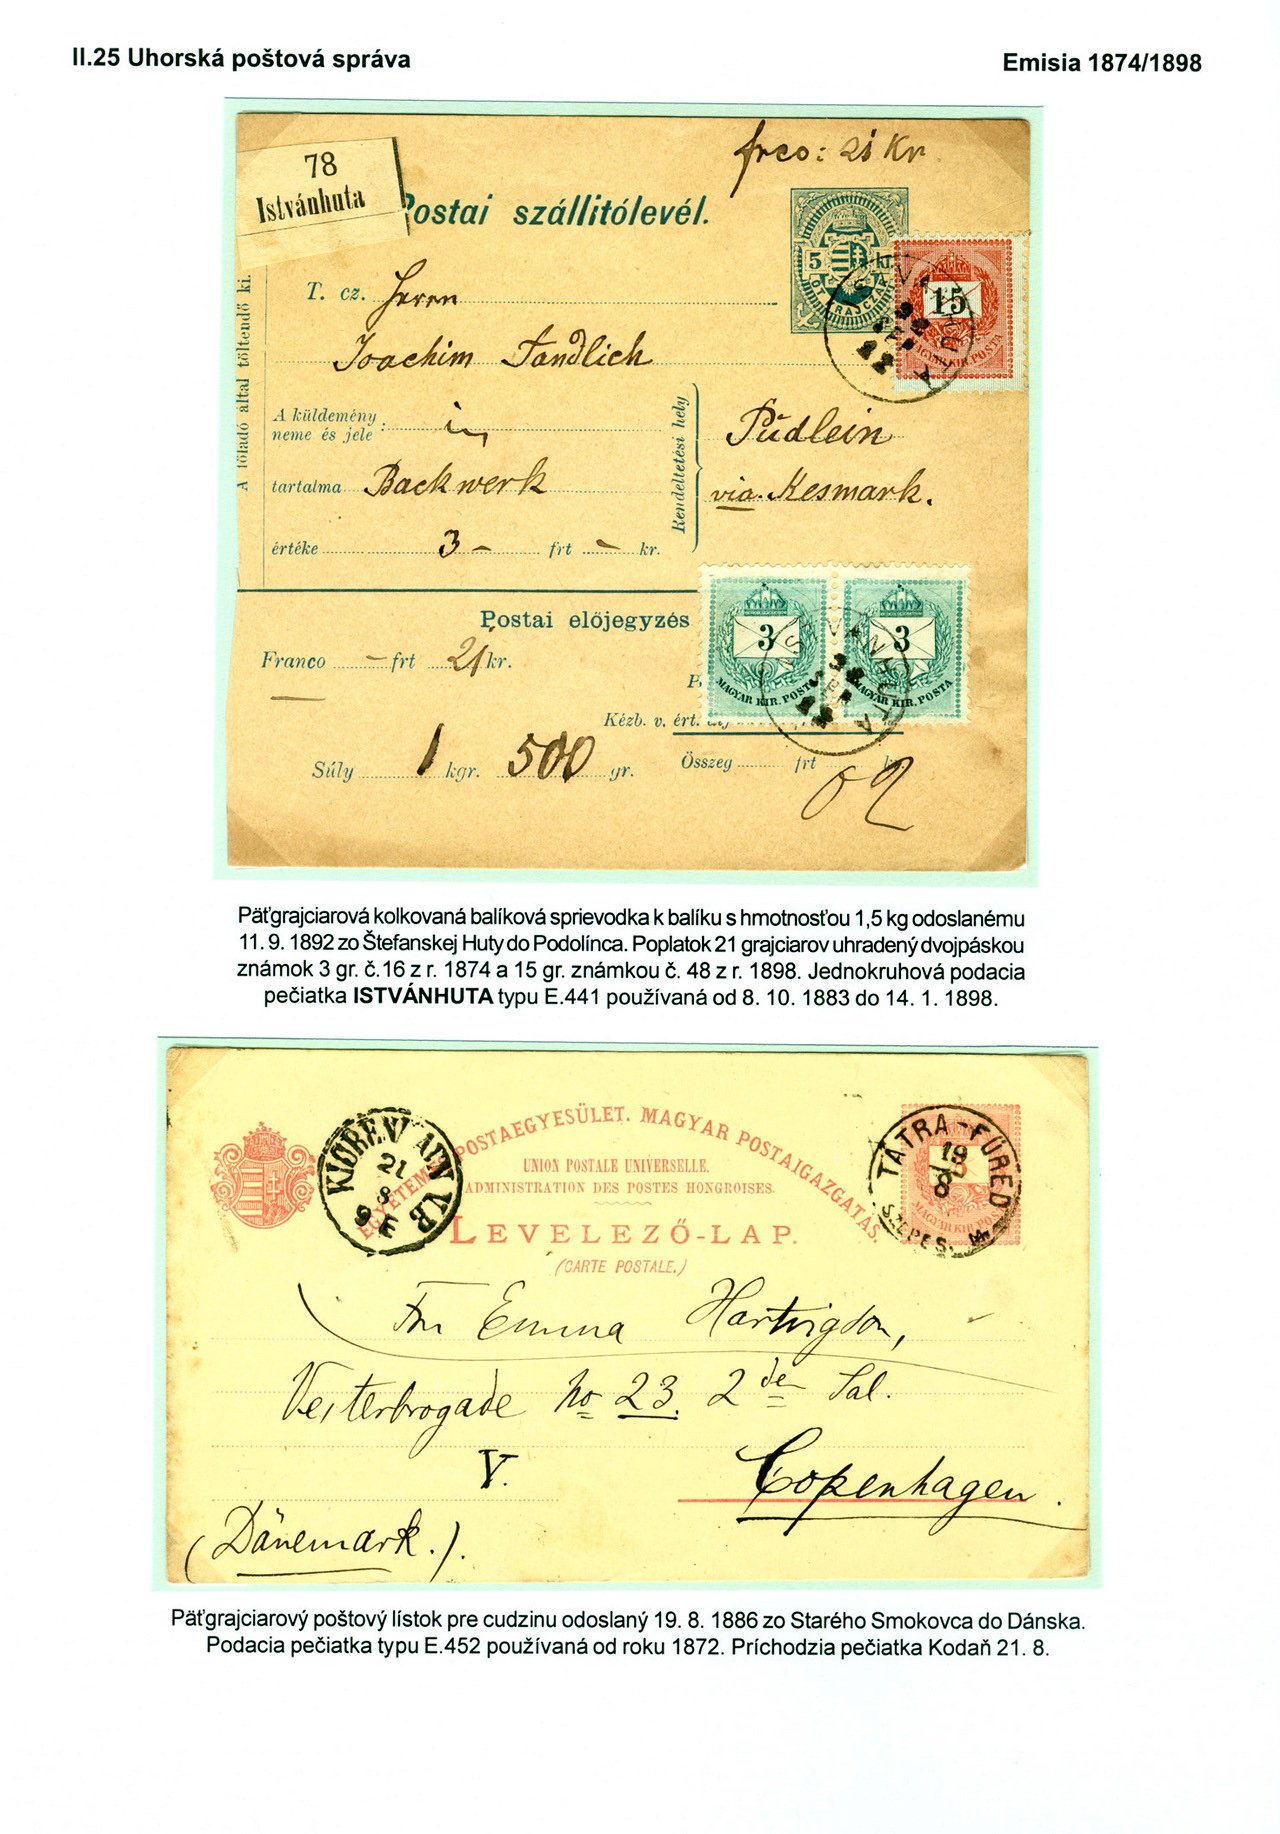 II.25 Uhorská poštová správa
Emisia 1874/1898
frco: 21 Kr
78
Istvánhuta
Postai szállitólevél.
5 kr.
15
MAGYAR KIR. POSTA
T. cz. Herrn
Joachim Fandlich
A feladó által töltendő ki.
A küldemény neme és jele : in
Rendeltetési hely
Pudlein
tartalma Backwerk
via Kesmark.
értéke 3 – frt – kr.
Postai előjegyzés
3
3
MAGYAR KIR. POSTA
MAGYAR KIR. POSTA
ISTVÁNHUTA
Franco – frt 21 kr.
Kézb. v. ért.
Súly 1 kgr. 500 gr.
Összeg frt kr.
Päťgrajciarová kolkovaná balíková sprievodka k balíku s hmotnosťou 1,5 kg odoslanému
11. 9. 1892 zo Štefanskej Huty do Podolínca. Poplatok 21 grajciarov uhradený dvojpáskou
známok 3 gr. č.16 z r. 1874 a 15 gr. známkou č. 48 z r. 1898. Jednokruhová podacia
pečiatka ISTVÁNHUTA typu E.441 používaná od 8. 10. 1883 do 14. 1. 1898.
EGYETEMES POSTAEGYESÜLET. MAGYAR POSTAIGAZGATÁS.
UNION POSTALE UNIVERSELLE.
ADMINISTRATION DES POSTES HONGROISES.
LEVELEZŐ-LAP.
(CARTE POSTALE.)
KIØBENHAVN V.B.
21
8
9 E
TÁTRA-FÜRED
19
8
SZEPES. M.
Emma Hartvigson,
Vesterbrogade No 23. 2 den Sal.
V.
Copenhagen.
(Dänemark.).
Päťgrajciarový poštový lístok pre cudzinu odoslaný 19. 8. 1886 zo Starého Smokovca do Dánska.
Podacia pečiatka typu E.452 používaná od roku 1872. Príchodzia pečiatka Kodaň 21. 8.